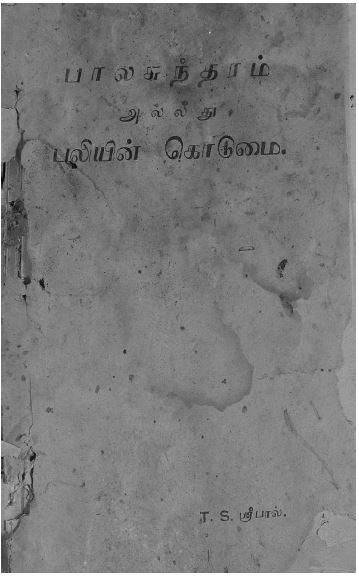 பாலசுந்தரம்
அல்லது
புலியின் கொடுமை.
T. S. ஸ்ரீபால்.